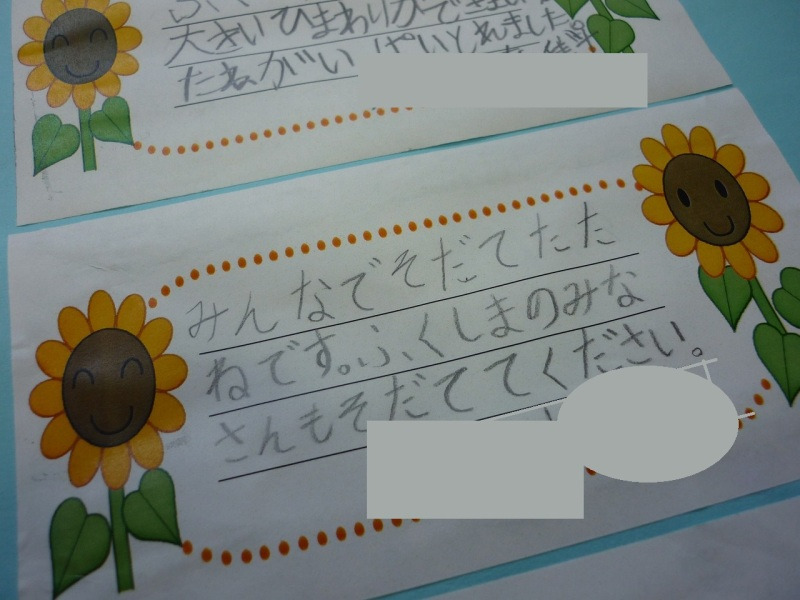 大きいひまわりができ
たねがいっぱいとれました。
みんなでそだてたた
ねです。ふくしまのみな
さんもそだててください。